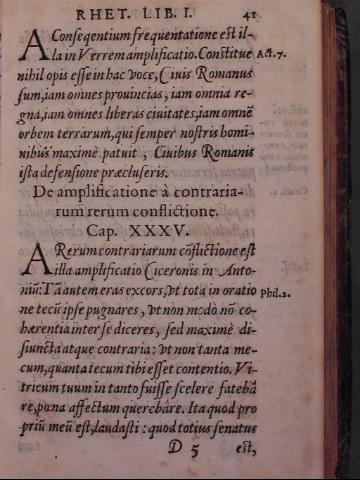 RHET. LIB. I. 41
A Conseqentium frequentatione est il-
la in Verrem amplificatio. Constitue Act. 7.
nihil opis esse in hac voce, Ciuis Romanus
sum, iam omnes prouincias, iam omnia re-
gna, iam omnes liberas ciuitates, iam omnē
orbem terrarum, qui semper nostris homi-
nibus maximè patuit, Ciuibus Romanis
ista defensione præcluseris.
De amplificatione à contraria-
rum rerum conflictione.
Cap. XXXV.
A Rerum contrariarum cōflictione est
illa amplificatio Ciceronis in Anto-
niū: Tā autem eras excors, vt tota in oratio Phil. 2.
ne tecū ipse pugnares, vt non modò nō co-
hærentia inter se diceres, sed maximè di-
siuncta atque contraria: vt non tanta me-
cum, quanta tecum tibi esset contentio. Vi-
tricum tuum in tanto fuisse scelere fatebā
re, pœna affectum querebāre. Ita quod pro
priū meū est, laudasti: quod totius senatus
D 5 est,